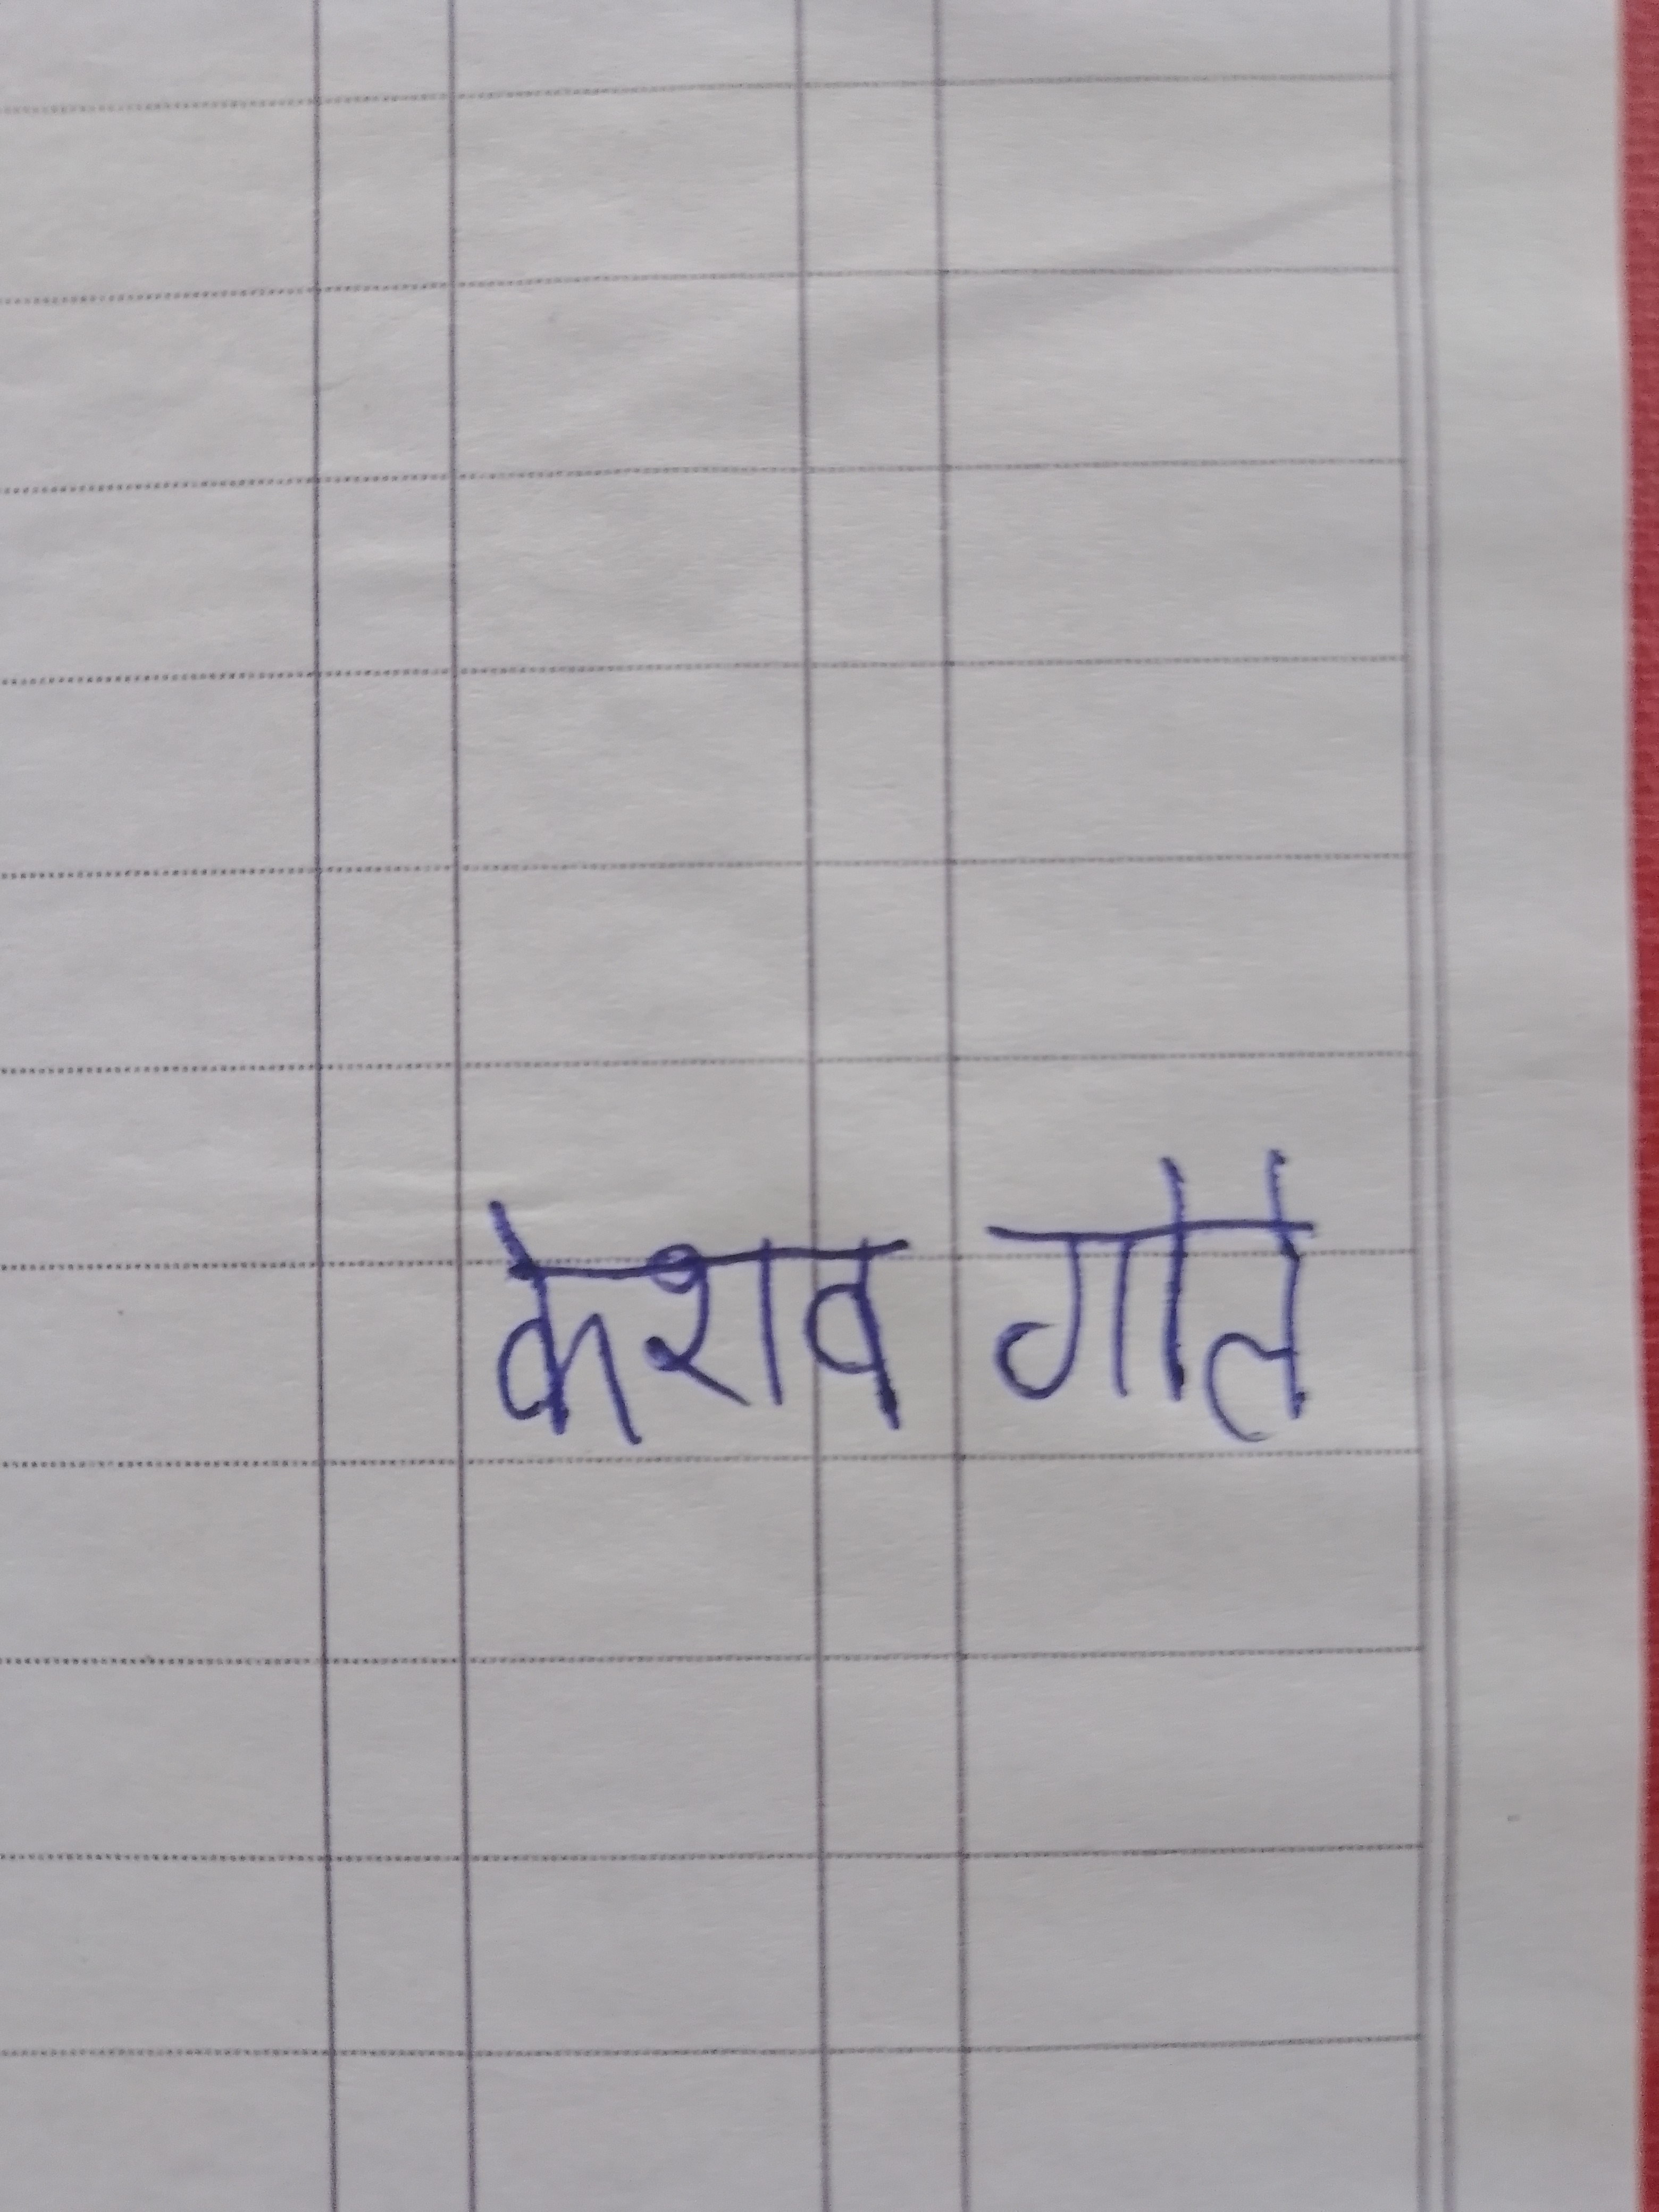 केशव गोते